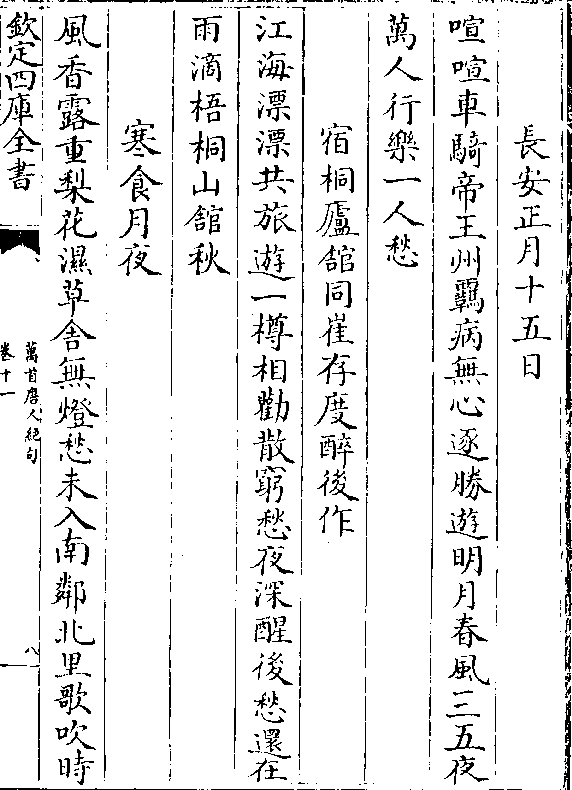 長安正月十五日
喧喧車騎帝王州羇病無心逐勝遊明月春風三五夜
萬人行樂一人愁
宿桐廬館同崔存度醉後作
江海漂漂共旅遊一樽相勸散窮愁夜深醒後愁還在
雨滴梧桐山館秋
寒食月夜
風香露重梨花濕草舎無燈愁未入南鄰北里歌吹時
欽定四庫全書
萬首唐人絕句
卷十一
八